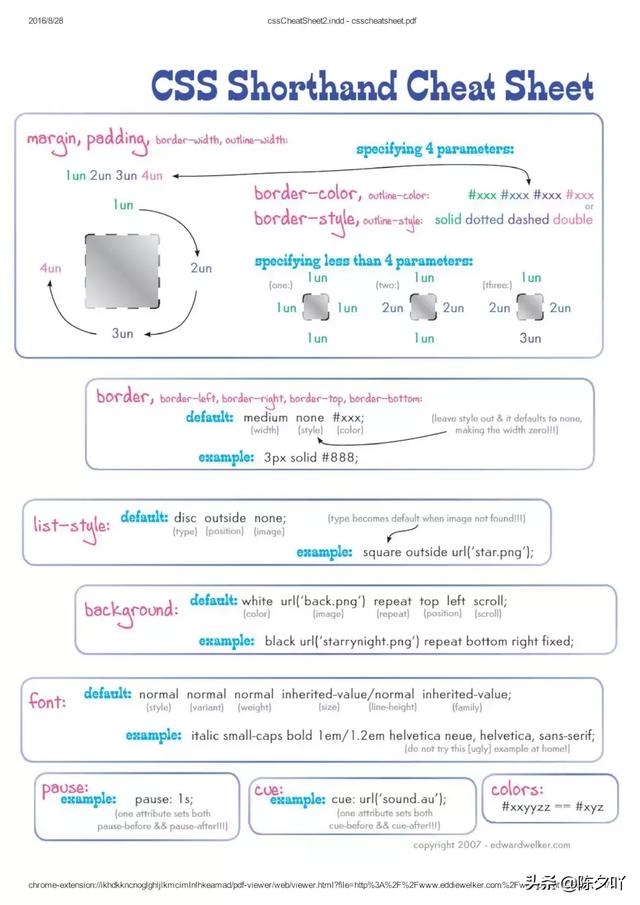 2016/8/28
cssCheatSheet2.indd - csscheatsheet.pdf
CSS Shorthand Cheat Sheet
margin, padding, border-width, outline-width:
specifying 4 parameters:
1un 2un 3un 4un
border-color, outline-color: #xxx #xxx #xxx #xxx
or
border-style, outline-style: solid dotted dashed double
1un
4un
2un
3un
specifying less than 4 parameters:
(one:)
1un
1un
1un
1un
(two:)
1un
2un
2un
1un
(three:)
1un
2un
2un
3un
border, border-left, border-right, border-top, border-bottom:
default: medium none #xxx;
(width) (style) (color)
(leave style out & it defaults to none,
making the width zero!!!)
example: 3px solid #888;
list-style: default: disc outside none;
(type) (position) (image)
(type becomes default when image not found!!!)
example: square outside url('star.png');
background: default: white url('back.png') repeat top left scroll;
(color) (image) (repeat) (position) (scroll)
example: black url('starrynight.png') repeat bottom right fixed;
font: default: normal normal normal inherited-value/normal inherited-value;
(style) (variant) (weight) (size) (line-height) (family)
example: italic small-caps bold 1em/1.2em helvetica neue, helvetica, sans-serif;
(do not try this [ugly] example at home!)
pause:
example: pause: 1s;
(one attribute sets both
pause-before && pause-after!!!)
cue:
example: cue: url('sound.au');
(one attribute sets both
cue-before && cue-after!!!)
colors:
#xxyyzz == #xyz
copyright 2007 - edwardwelker.com
头条 @陈夕吖